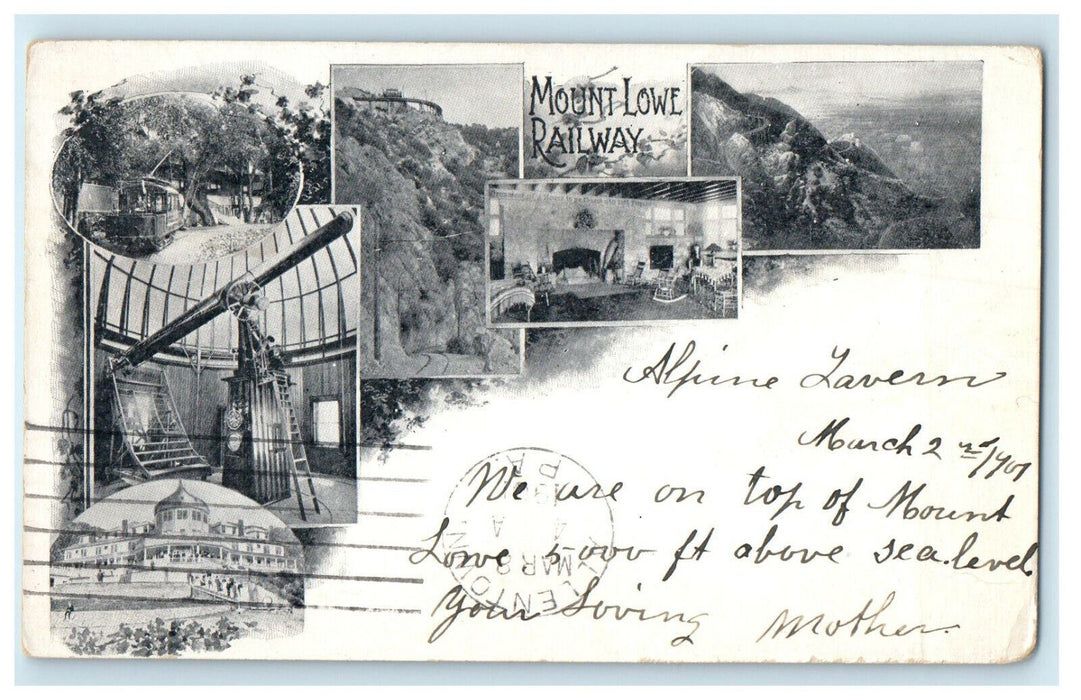 MOUNT LOWE
RAILWAY
Alpine Tavern
March 2nd/1901
We are on top of Mount
Lowe 5,000 ft above sea level
Your Loving Mother
ALLENTOWN
MAR 8
4 A
PA.